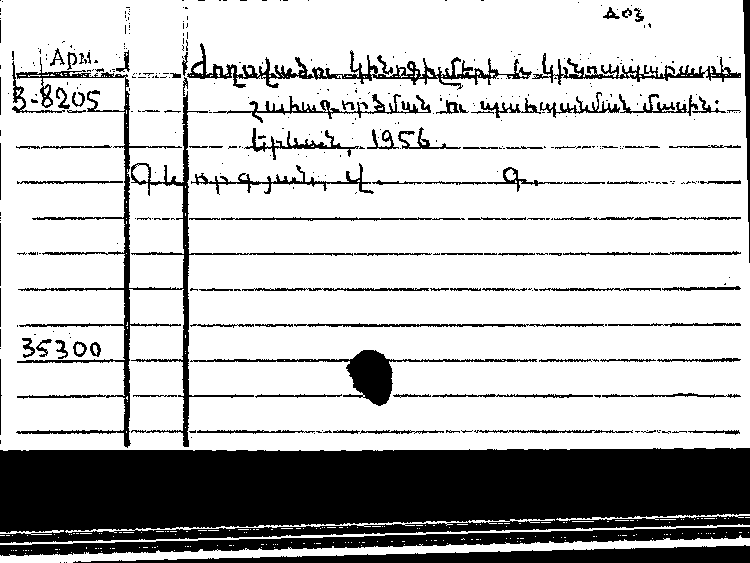 ДОЗ.
Арм. Ժողովածու կինոֆիլմերի և կինոապարատի
3-8205 շահագործման ու պահպանման մասին:
Երևան, 1956.
Գևորգյան, Վ. Գ.
35300